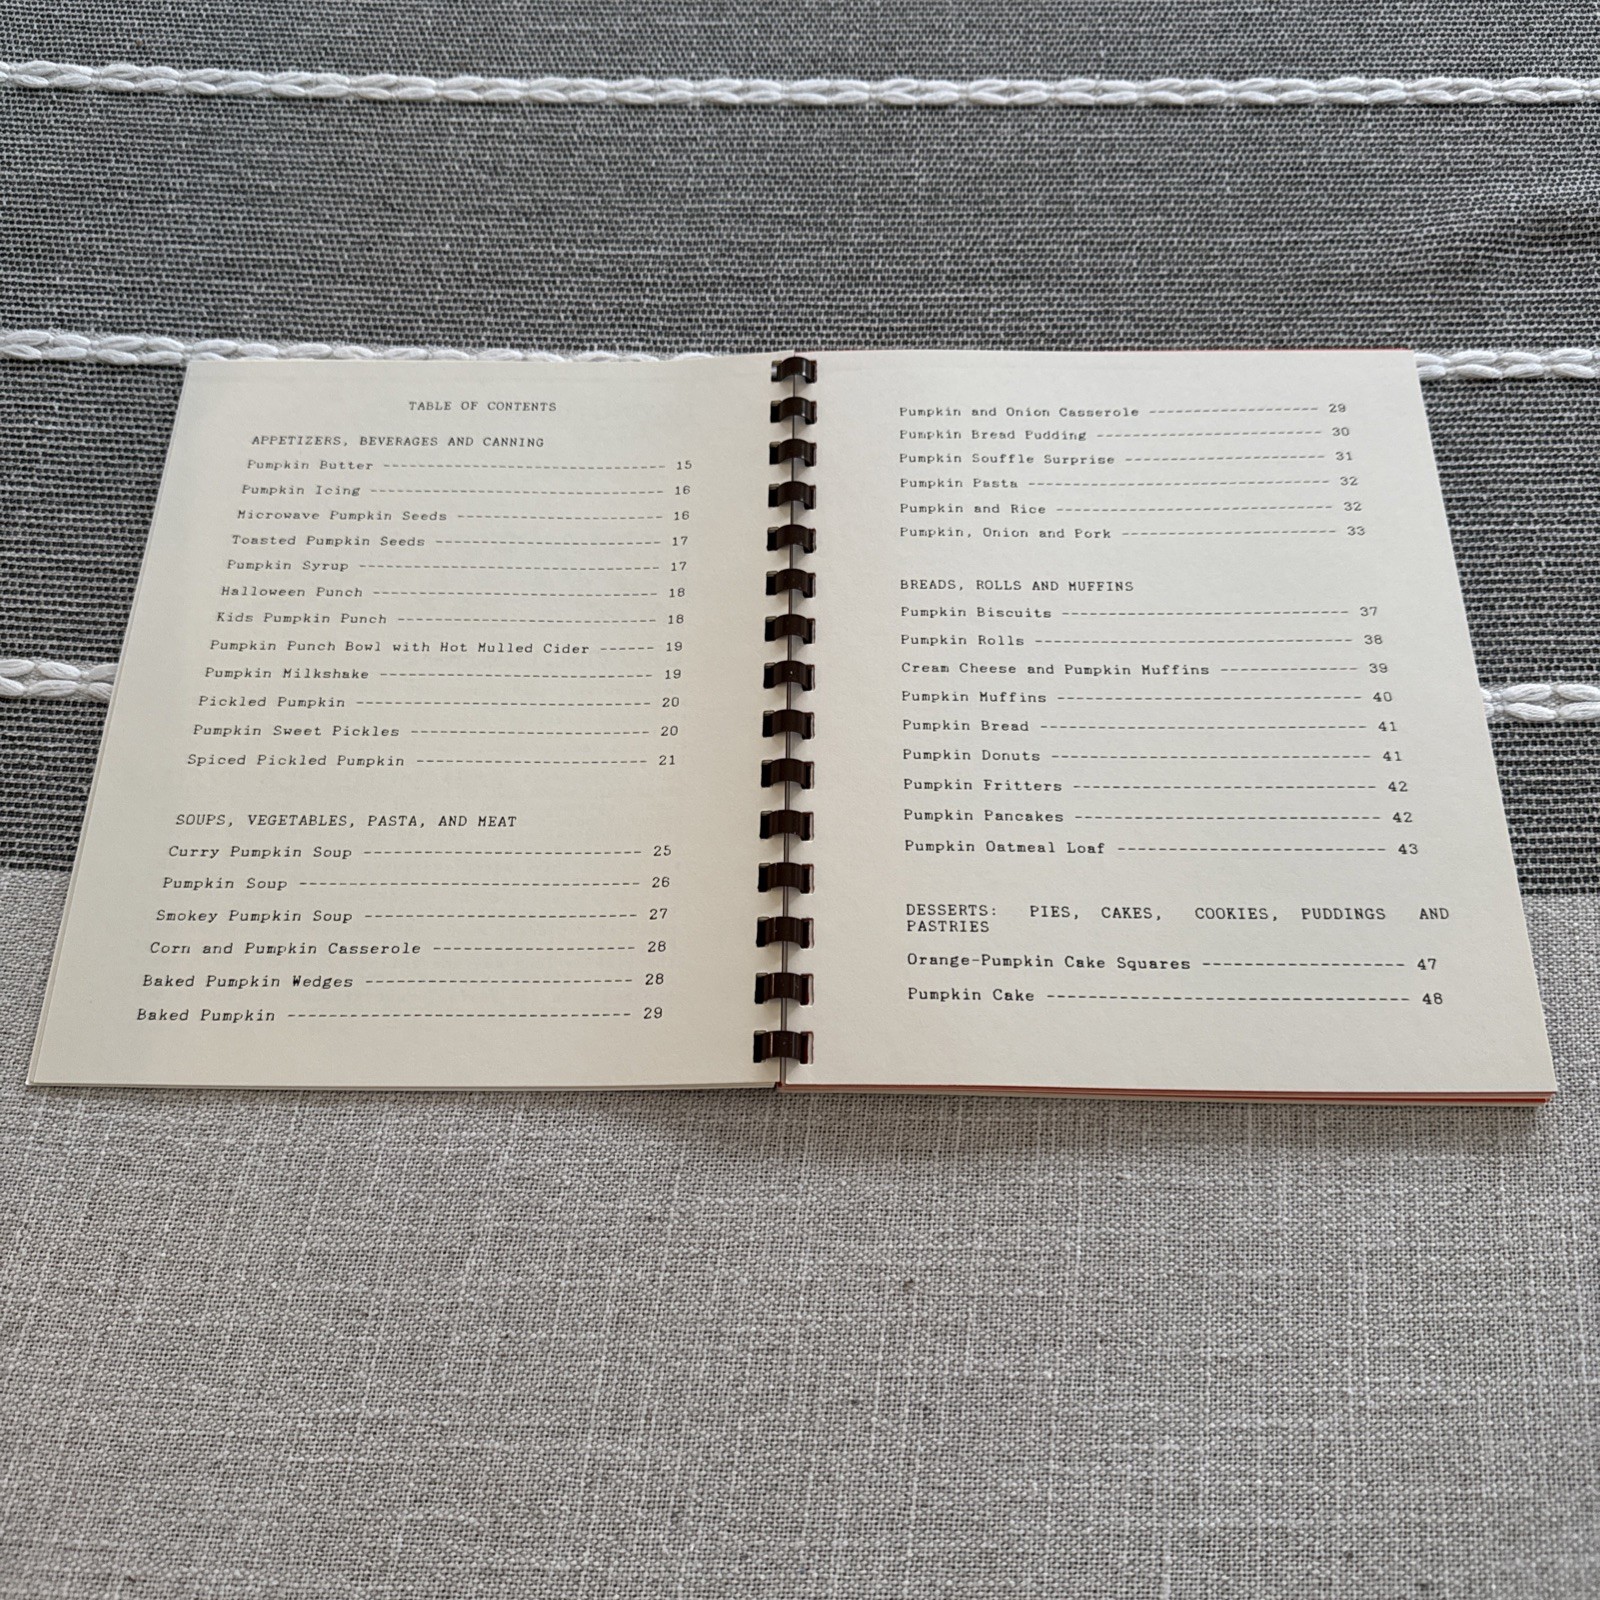 TABLE OF CONTENTS
APPETIZERS, BEVERAGES AND CANNING
Pumpkin Butter -------------------------------- 15
Pumpkin Icing --------------------------------- 16
Microwave Pumpkin Seeds ----------------------- 16
Toasted Pumpkin Seeds ------------------------- 17
Pumpkin Syrup --------------------------------- 17
Halloween Punch ------------------------------- 18
Kids Pumpkin Punch ---------------------------- 18
Pumpkin Punch Bowl with Hot Mulled Cider ------ 19
Pumpkin Milkshake ----------------------------- 19
Pickled Pumpkin ------------------------------- 20
Pumpkin Sweet Pickles ------------------------- 20
Spiced Pickled Pumpkin ------------------------ 21
SOUPS, VEGETABLES, PASTA, AND MEAT
Curry Pumpkin Soup ---------------------------- 25
Pumpkin Soup ---------------------------------- 26
Smokey Pumpkin Soup --------------------------- 27
Corn and Pumpkin Casserole -------------------- 28
Baked Pumpkin Wedges -------------------------- 28
Baked Pumpkin --------------------------------- 29
Pumpkin and Onion Casserole ------------------- 29
Pumpkin Bread Pudding ------------------------- 30
Pumpkin Souffle Surprise ---------------------- 31
Pumpkin Pasta --------------------------------- 32
Pumpkin and Rice ------------------------------ 32
Pumpkin, Onion and Pork ----------------------- 33
BREADS, ROLLS AND MUFFINS
Pumpkin Biscuits ------------------------------ 37
Pumpkin Rolls --------------------------------- 38
Cream Cheese and Pumpkin Muffins -------------- 39
Pumpkin Muffins ------------------------------- 40
Pumpkin Bread --------------------------------- 41
Pumpkin Donuts -------------------------------- 41
Pumpkin Fritters ------------------------------ 42
Pumpkin Pancakes ------------------------------ 42
Pumpkin Oatmeal Loaf -------------------------- 43
DESSERTS: PIES, CAKES, COOKIES, PUDDINGS AND
PASTRIES
Orange-Pumpkin Cake Squares ------------------- 47
Pumpkin Cake ---------------------------------- 48